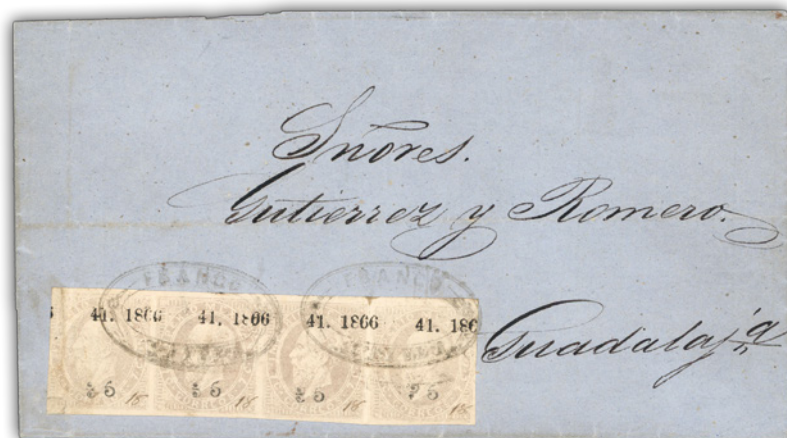 Señores.
Gutierrez y Romero.
Guadalaja
FRANCO FRANCO
41. 1866 41. 1866 41. 1866 41. 186
CORREOS
18 18 18 18